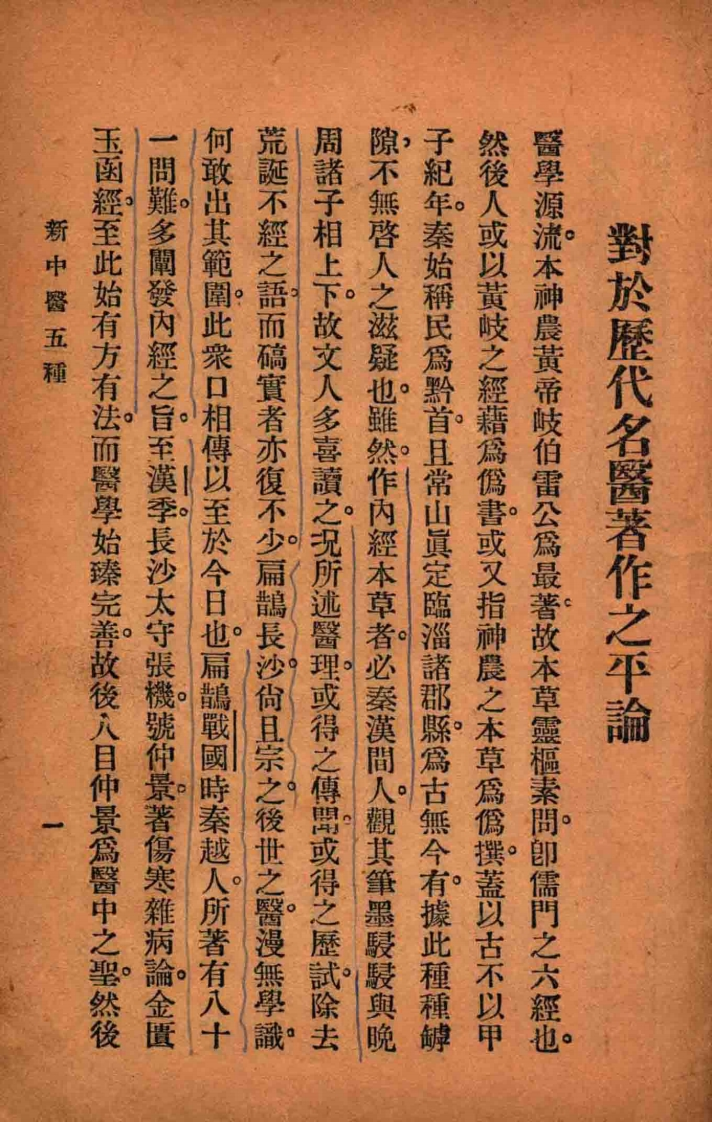 對於歷代名醫著作之平論
醫學源流。本神農黃帝岐伯雷公爲最著。故本草靈樞素問。卽儒門之六經也。
然後人或以黃岐之經藉爲僞書。或又指神農之本草爲僞撰。蓋以古不以甲
子紀年。秦始稱民爲黔首。且常山眞定臨淄諸郡縣。爲古無今有。據此種種罅
隙，不無啓人之滋疑也。雖然。作內經本草者。必秦漢間人。觀其筆墨駸駸與晚
周諸子相上下。故文人多喜讀之。况所述醫理。或得之傳聞。或得之歷試。除去
荒誕不經之語。而碻實者亦復不少。扁鵲長沙。尙且宗之。後世之醫。漫無學識。
何敢出其範圍。此衆口相傳以至於今日也。扁鵲戰國時秦越人。所著有八十
一問難。多闡發內經之旨。至漢季。長沙太守張機。號仲景。著傷寒雜病論。金匱
玉函經。至此始有方有法。而醫學始臻完善。故後人目仲景爲醫中之聖。然後
新中醫五種
一